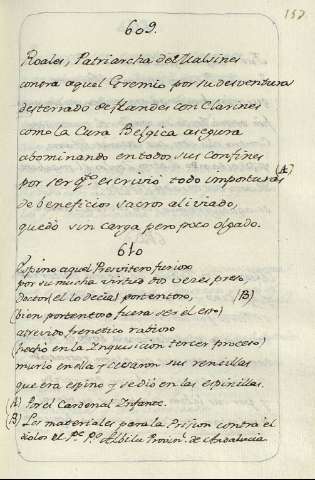 157
609.
Roales, Patriarcha de Malsines
contra aquel Gremio por su desventura
desterrado de flandes con Clarines
como la Cura Belgica asegura
abominando en todos sus confines
por ser q.e escrivió todo imposturas (A)
de beneficios sacros aliviado,
quedó sin carga pero poco olgado.
610
Espino aquel Presvitero furioso
por su mucha virtud dos veces preso
Doctor (el lo decia) portentoso, (B)
(bien portentoso fuera ser él esto)
atrevido, frenetico ravioso
(hecho en la Inquisicion tercer proceso)
murio en ella y cesaron sus rencillas
que era espino y se dió en las espinillas.
(A) Por el Cardenal Infante.
(B) Los materiales para la Prision contra él
diolos el P.e P.o Abilu Provin.l de Andalucia